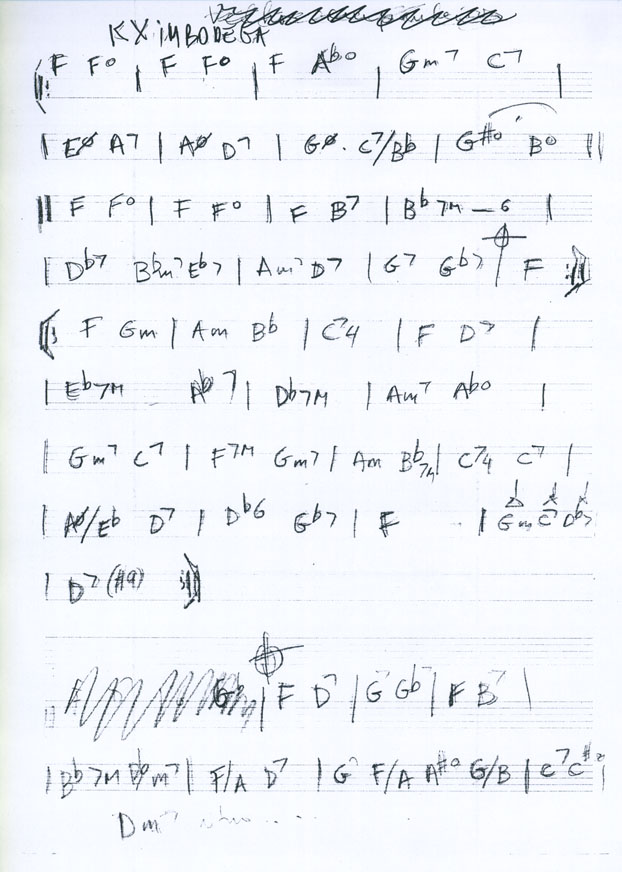 KXiMBODEGA
F F° | F F° | F Ab° | Gm7 C7 |
| EØ A7 | AØ D7 | GØ. C7/Bb | G#° B° ||
|| F F° | F F° | F B7 | Bb7M — 6 |
| Db7 Bbm7 Eb7 | Am7 D7 | G7 Gb7 | F :||
||: F Gm | Am Bb | C74 | F D7 |
| Eb7M Ab7 | Db7M | Am7 Ab° |
| Gm7 C7 | F7M Gm7 | Am Bb7M | C74 C7 |
| AØ/Eb D7 | Db6 Gb7 | F | Gm C7 Db7
| D7 (#9) :||
| F D7 | G7 Gb7 | F B7 |
| Bb7M Bbm7 | F/A D7 | G F/A A#° G/B | C7 C#° |
Dm7